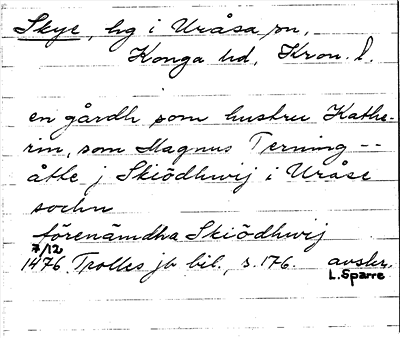 Skye, hg i Uråsa sn,
Konga hd, Kron. l.
en gårdh som hustru Kathe-
rin, som Magnus Terning --
åtte j Skiödhwij i Uråse
sochn
förenämdha Skiödhwij
7/12
1476. Trolles jb bil., s. 176. avskr.
L. Sparre